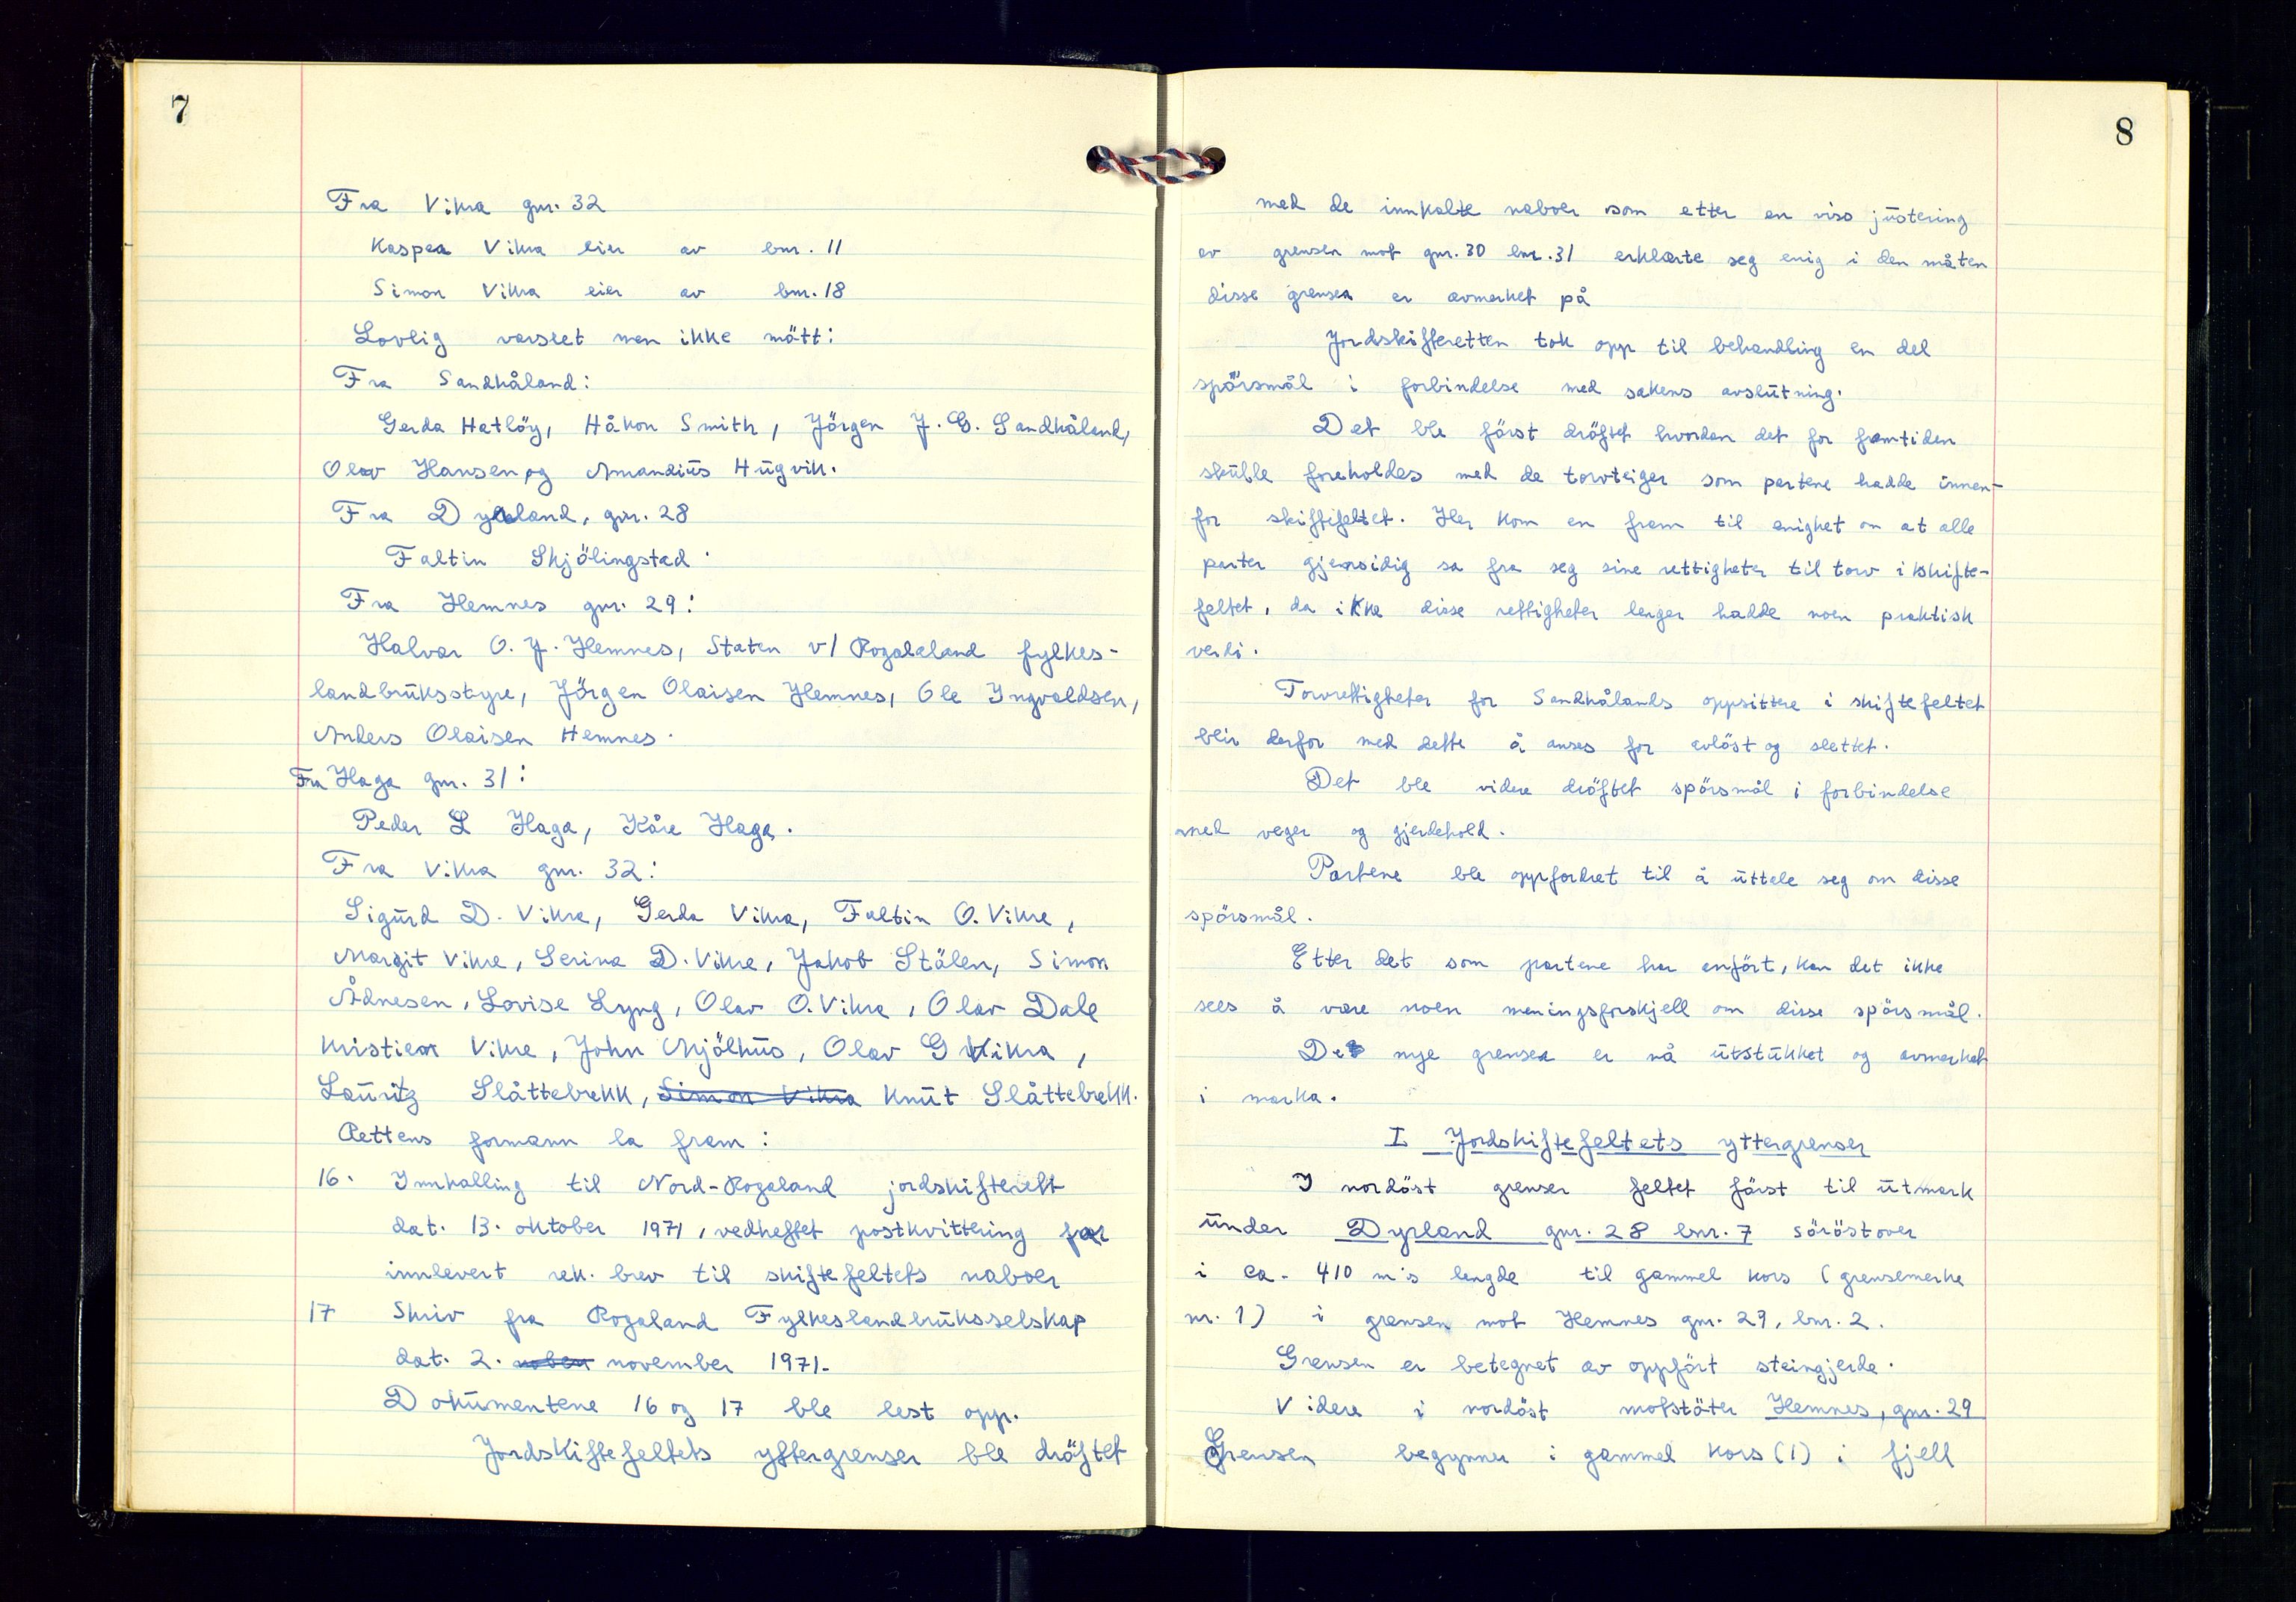 7
Fra Vikra gnr. 32
Kasper Vikra eier av bnr. 11
Simon Vikra eier av bnr. 18
Lovlig varslet men ikke mött:
Fra Sandhåland:
Gerda Hatlöy, Håkon Smith, Jörgen J. G. Sandhåland,
Olav Hansen og Amandius Hugvik.
Fra Dyrland, gnr. 28
Faltin Skjölingstad.
Fra Hemnes gnr. 29:
Halvar O. J. Hemnes, Staten v/ Rogaland fylkes-
landbruksstyre, Jörgen Olaisen Hemnes, Ole Ingvaldsen,
Anders Olaisen Hemnes.
Fra Haga gnr. 31:
Peder L Haga, Kåre Haga.
Fra Vikra gnr. 32:
Sigurd D. Vikre, Gerda Vikra, Faltin O. Vikre,
Margit Vikre, Serina D. Vikre, Jakob Stölen, Simon
Ådnesen, Lovise Lyng, Olav O. Vikra, Olav Dale
Kristian Vikre, John Mjölhus, Olav G Vikra,
Lauritz Slåttebrekk, Simon Vikra Knut Slåttebrekk.
Rettens formann la fram:
16. Innkalling til Nord-Rogaland jordskifterett
dat. 13. oktober 1971, vedheftet postkvittering for
innlevert rek. brev til skiftefeltets naboer
17 Skriv fra Rogaland Fylkeslandbruksselskap
dat. 2. november 1971.
Dokumentene 16 og 17 ble lest opp.
Jordskiftefeltets yttergrenser ble dröftet
8
med de innkalte naboer som etter en viss justering
av grensen mot gnr. 30 bnr. 31 erklærte seg enig i den måten
disse grenser er avmerket på
Jordskifteretten tok opp til behandling en del
spörsmål i forbindelse med sakens avslutning.
Det ble först dröftet hvordan det for framtiden
skulle foreholdes med de torvteiger som partene hadde innen-
for skiftefeltet. Her kom en fram til enighet om at alle
parter gjensidig sa fra seg sine rettigheter til torv i skifte-
feltet, da ikke disse rettigheter lenger hadde noen praktisk
verdi.
Torvrettigheter for Sandhålands oppsittere i skiftefeltet
blir derfor med dette å anses for avlöst og slettet.
Det ble videre dröftet spörsmål i forbindelse
med veger og gjerdehold.
Partene ble oppfordret til å uttale seg om disse
spörsmål.
Etter det som partene har anfört, kan det ikke
sees å være noen meningsforskjell om disse spörsmål.
De nye grenser er nå utstukket og avmerket
i marka.
I Jordskiftefeltets yttergrenser
I nordöst grenser feltet först til utmark
under Dyrland gnr. 28 bnr. 7 söröstover
i ca. 410 m's lengde til gammel kors (grensemerke
nr. 1) i grensen mot Hemnes gnr. 29, bnr. 2.
Grensen er betegnet av oppfört steingjerde.
Videre i nordöst motstöter Hemnes, gnr. 29
Grensen begynner i gammel kors (1) i fjell